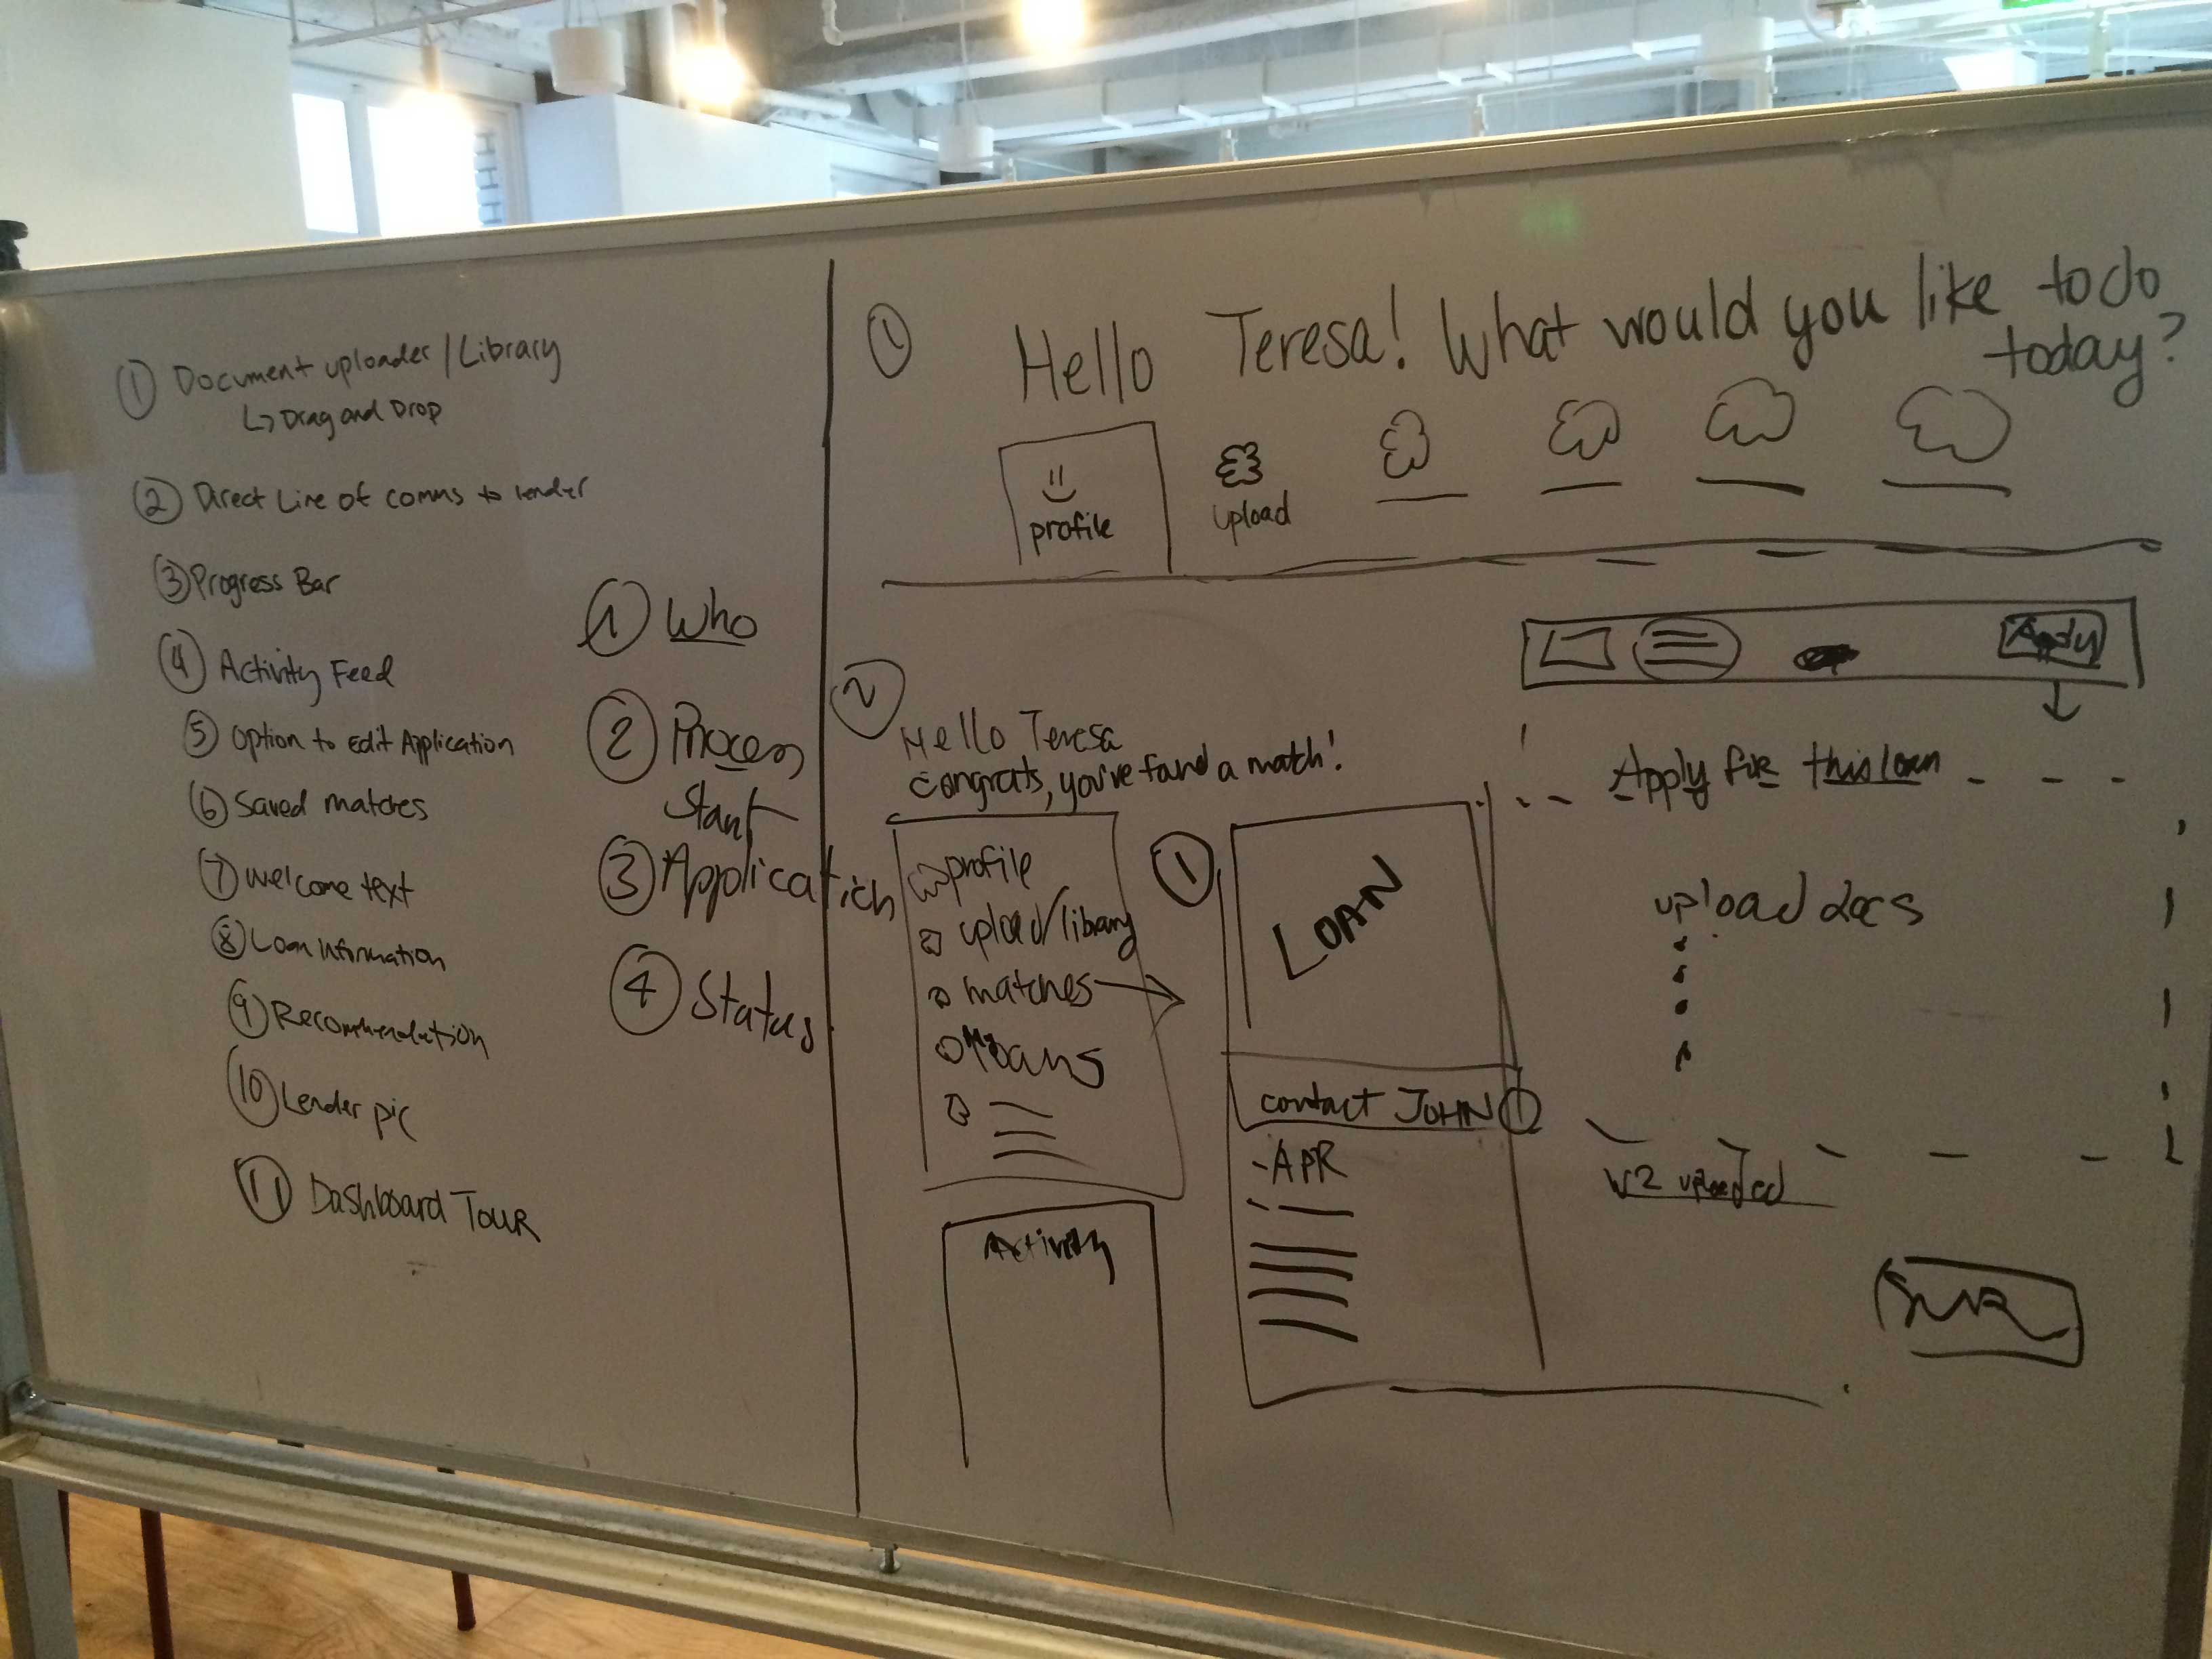 ① Document uploader / Library
↳ Drag and Drop
② Direct Line of comms to lender
③ Progress Bar
④ Activity Feed
⑤ Option to Edit Application
⑥ Saved matches
⑦ Welcome text
⑧ Loan Information
⑨ Recommendation
⑩ Lender pic
⑪ Dashboard Tour
① Who
② Process
Start
③ Application
④ Status
① Hello Teresa! What would you like to do
today?
profile
upload
②
Hello Teresa
congrats, you've found a match!
profile
upload/library
matches
My loans
Activity
①
LOAN
contact JOHN
- APR
Apply
Apply for this loan
upload docs
W2 uploaded